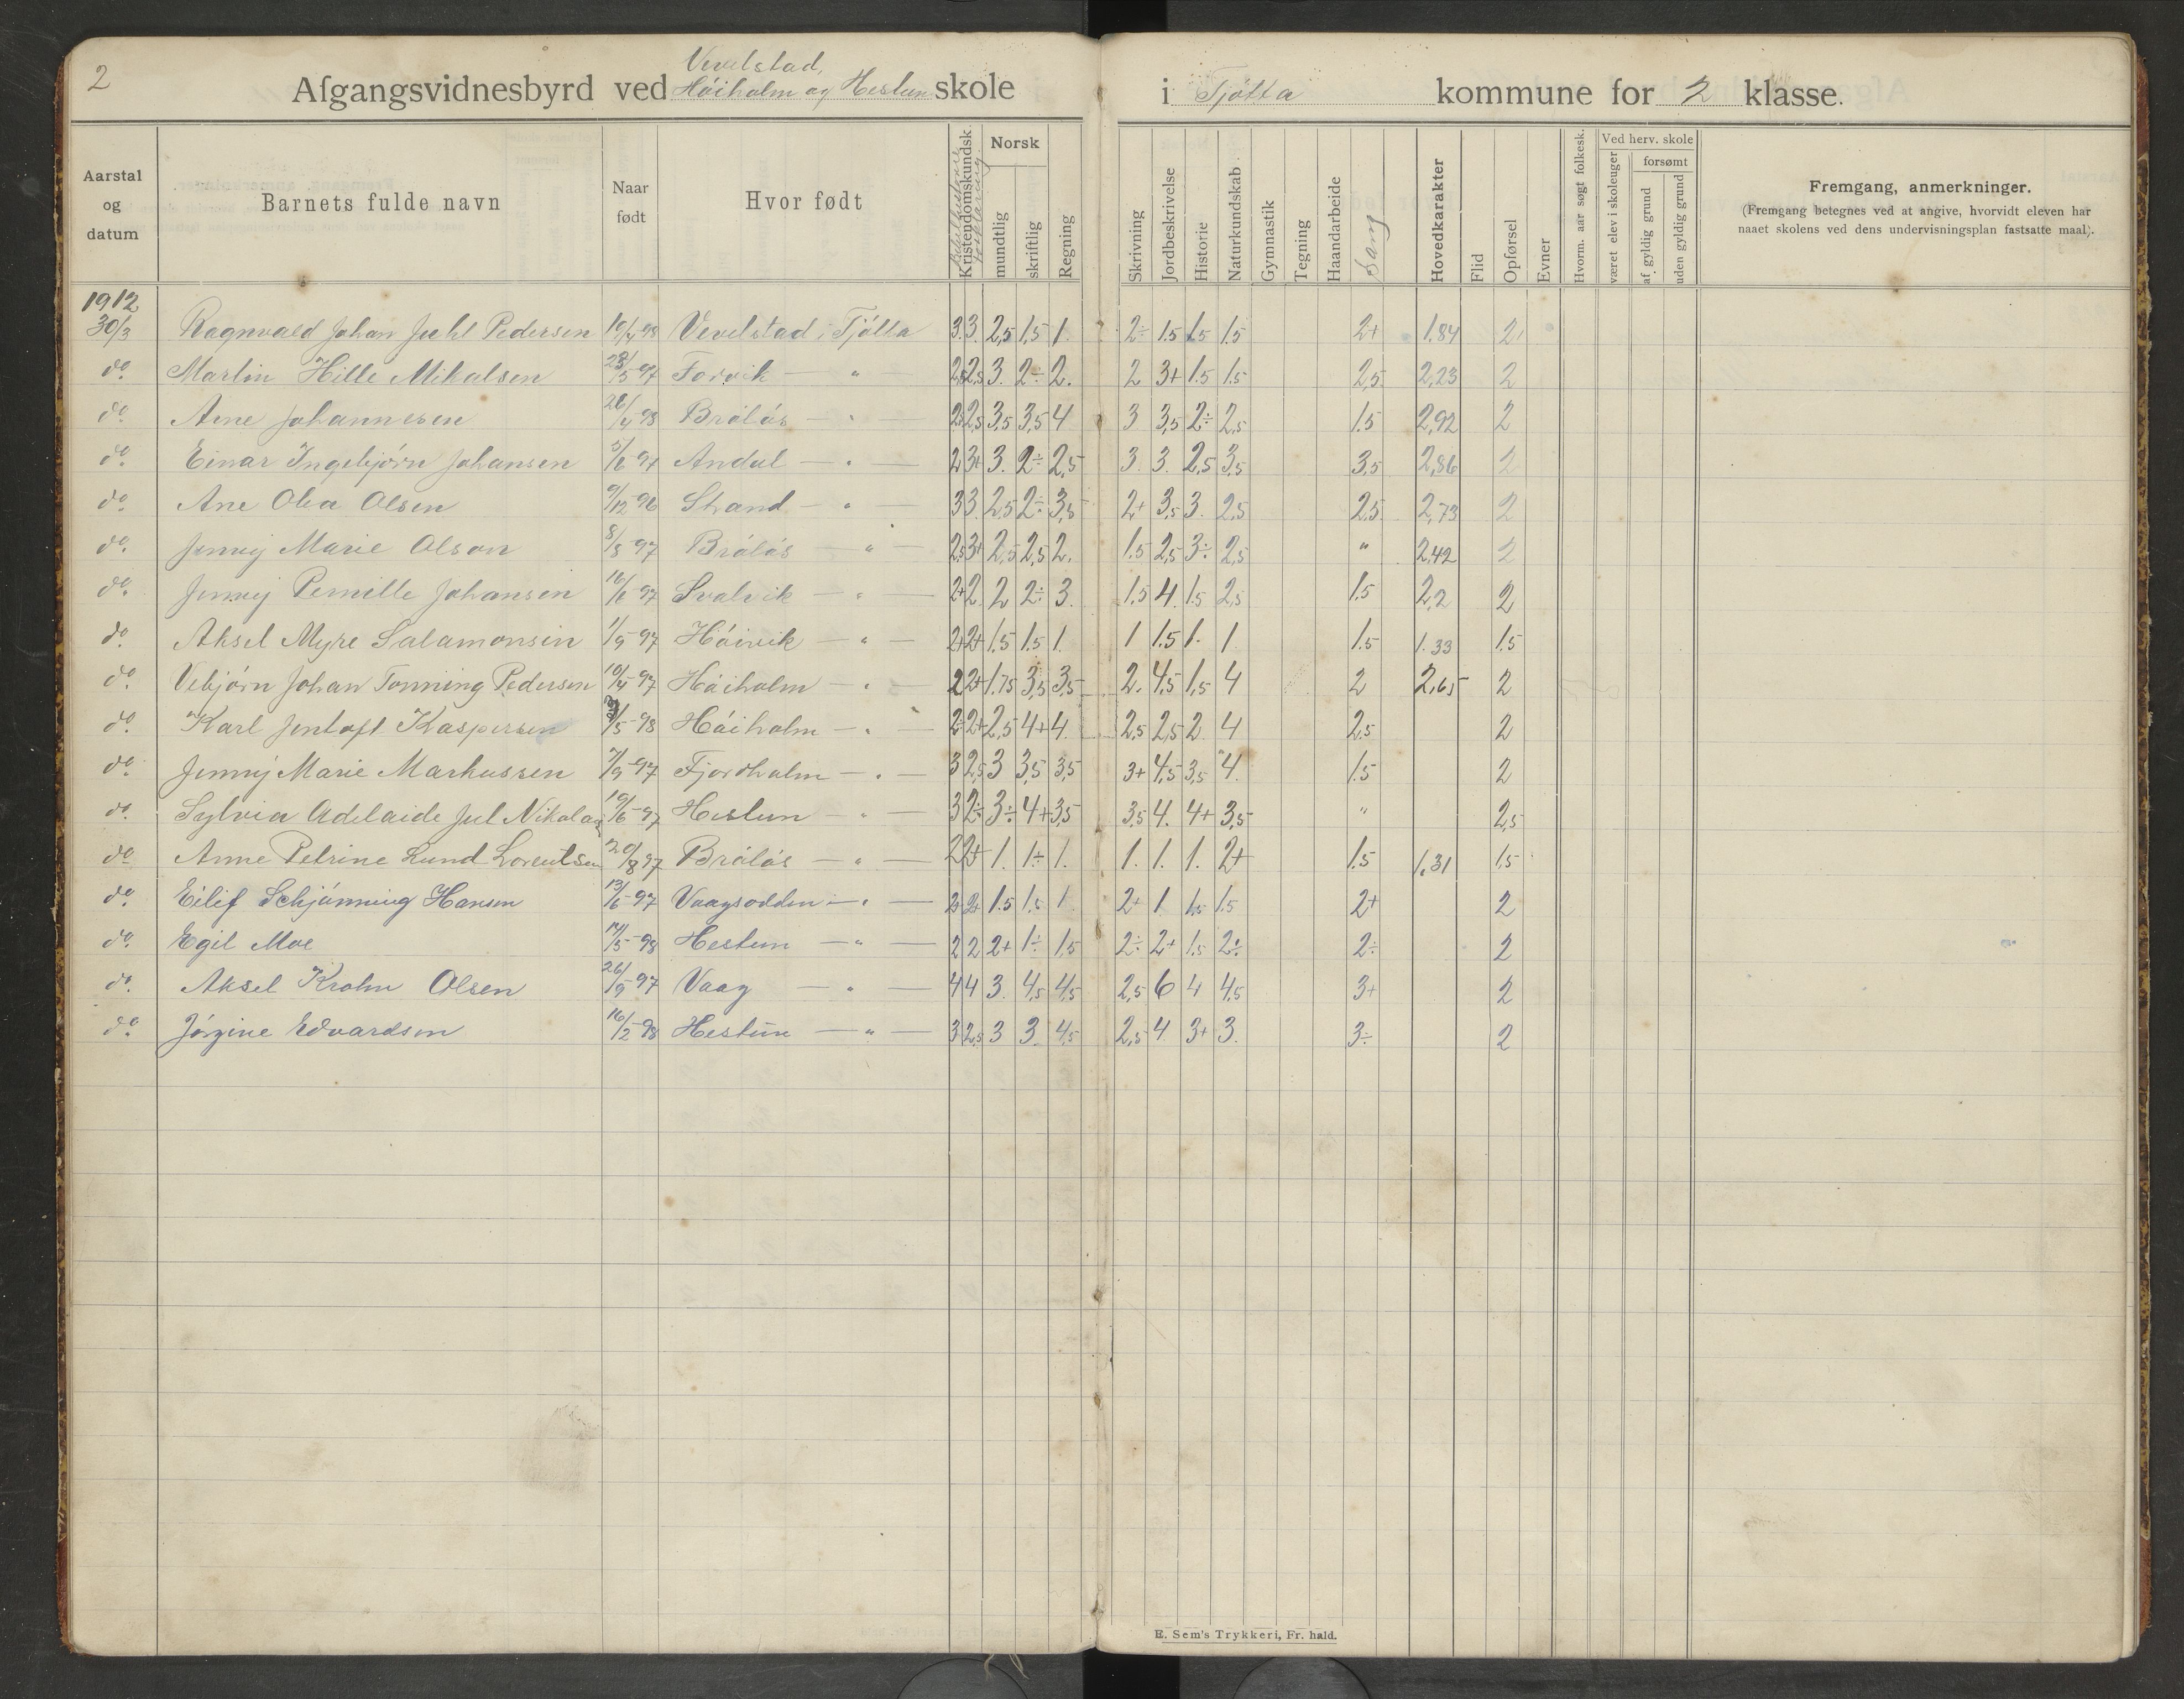 2
Afgangsvidnesbyrd ved Vevelstad, Höiholm og Hestun skole i Tjötta kommune for 2 klasse.
Aarstal og datum | Barnets fulde navn | Naar født | Hvor født | Kristendomskundsk. | Norsk mundtlig | skriftlig | Regning | Skrivning | Jordbeskrivelse | Historie | Naturkundskab | Gymnastik | Tegning | Haandarbeide | Sang | Hovedkarakter | Flid | Opførsel | Evner | Hvorm. aar søgt folkesk. | Ved herv. skole | været elev i skoleuger | forsømt | af gyldig grund | uden gyldig grund | Fremgang, anmerkninger.
(Fremgang betegnes ved at angive, hvorvidt eleven har naaet skolens ved dens undervisningsplan fastsatte maal).
1912
30/3 Ragnvald Johan Juhl Pedersen 10/4 98 Vevelstad i Tjötta 3. 3. 2,5 1,5 1. 2÷ 1.5 1.5 1.5 2+ 1.84 2
do. Martin Hille Mikalsen 23/5 97 Forvik — " — 2,5 2,5 3. 2÷ 2. 2 3+ 1.5 1.5 2,5 2,23 2
do. Arne Johannesen 26/4 98 Brålås — " — 2,5 2,5 3,5 3,5 4 3 3,5 2÷ 2,5 1.5 2,92 2
do. Einar Ingebjørn Johansen 5/6 97 Andal — " — 2 3+ 3. 2÷ 2,5 3. 3. 2,5 3,5 3,5 2,86 2
do. Ane Olea Olsen 9/12 96 Strand — " — 3 3. 2,5 2÷ 3,5 2+ 3,5 3. 2,5 2,5 2,73 2
do. Jenny Marie Olson 8/5 97 Brålås — " — 2,5 3+ 2,5 2,5 2. 1.5 2,5 3÷ 2,5 " 2,42 2
do. Jenny Pernille Johansen 16/6 97 Svalvik — " — 2+ 2 2 2÷ 3. 1.5 4. 1.5 2,5 1.5 2,2 2
do. Aksel Myre Salamonsen 1/9 97 Höivik — " — 2+ 2+ 1.5 1.5 1. 1 1.5 1. 1 1.5 1.33 1.5
do. Vebjörn Johan Tonning Pedersen 10/4 97 Höiholm — " — 2 2+ 1.75 3,5 3,5 2. 4,5 1,5 4 2 2,65 2
do. Karl Jentoft Kaspersen /5 98 Höiholm — " — 2÷ 2+ 2,5 4+ 4. 2,5 2,5 2 4 2,5 2
do. Jenny Marie Markussen 7/9 97 Fjordholm — " — 3 2,5 3 3,5 3,5 3+ 4,5 3,5 4. 1.5 2
do. Sylvia Adelaide Jul Nikolas 19/6 97 Hestun — " — 3 2÷ 3÷ 4+ 3,5 3,5 4. 4+ 3,5 " 2,5
do Anne Petrine Lund Lorentsen 20/8 97 Brålås — " — 2 2+ 1. 1÷ 1. 1. 1. 1. 2+ 1.5 1,31 1,5
do. Eilif Schjönning Hansen 13/6 97 Vaagsodden — " — 2+ 2+ 1.5 1.5 1 2+ 1 1.5 1.5 2+ 2
do. Egil Moe 14/5 98 Hestun — " — 2 2 2+ 1÷ 1,5 2÷ 2+ 1.5 2÷ 2÷ 2
do. Aksel Krohn Olsen 26/9 97 Vaag — " — 4 4 3. 4,5 4,5 2,5 6 4 4,5 3+ 2
do. Jörgine Edvardsen 16/2 98 Hestun — " — 3 2,5 3 3. 4,5 2,5 4 3+ 3. 3÷ 2
E. Sem's Trykkeri, Fr. hald.